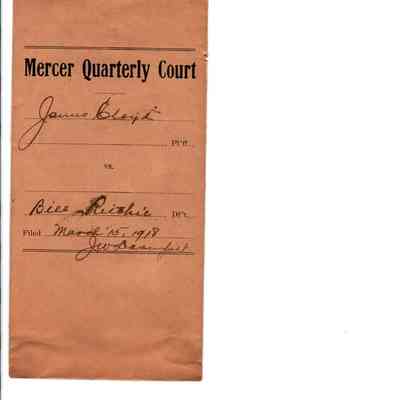 Mercer Quarterly Court
James
Pl'ff.
vs.
Bill Ritchie Df't.
Filed March 15, 1918